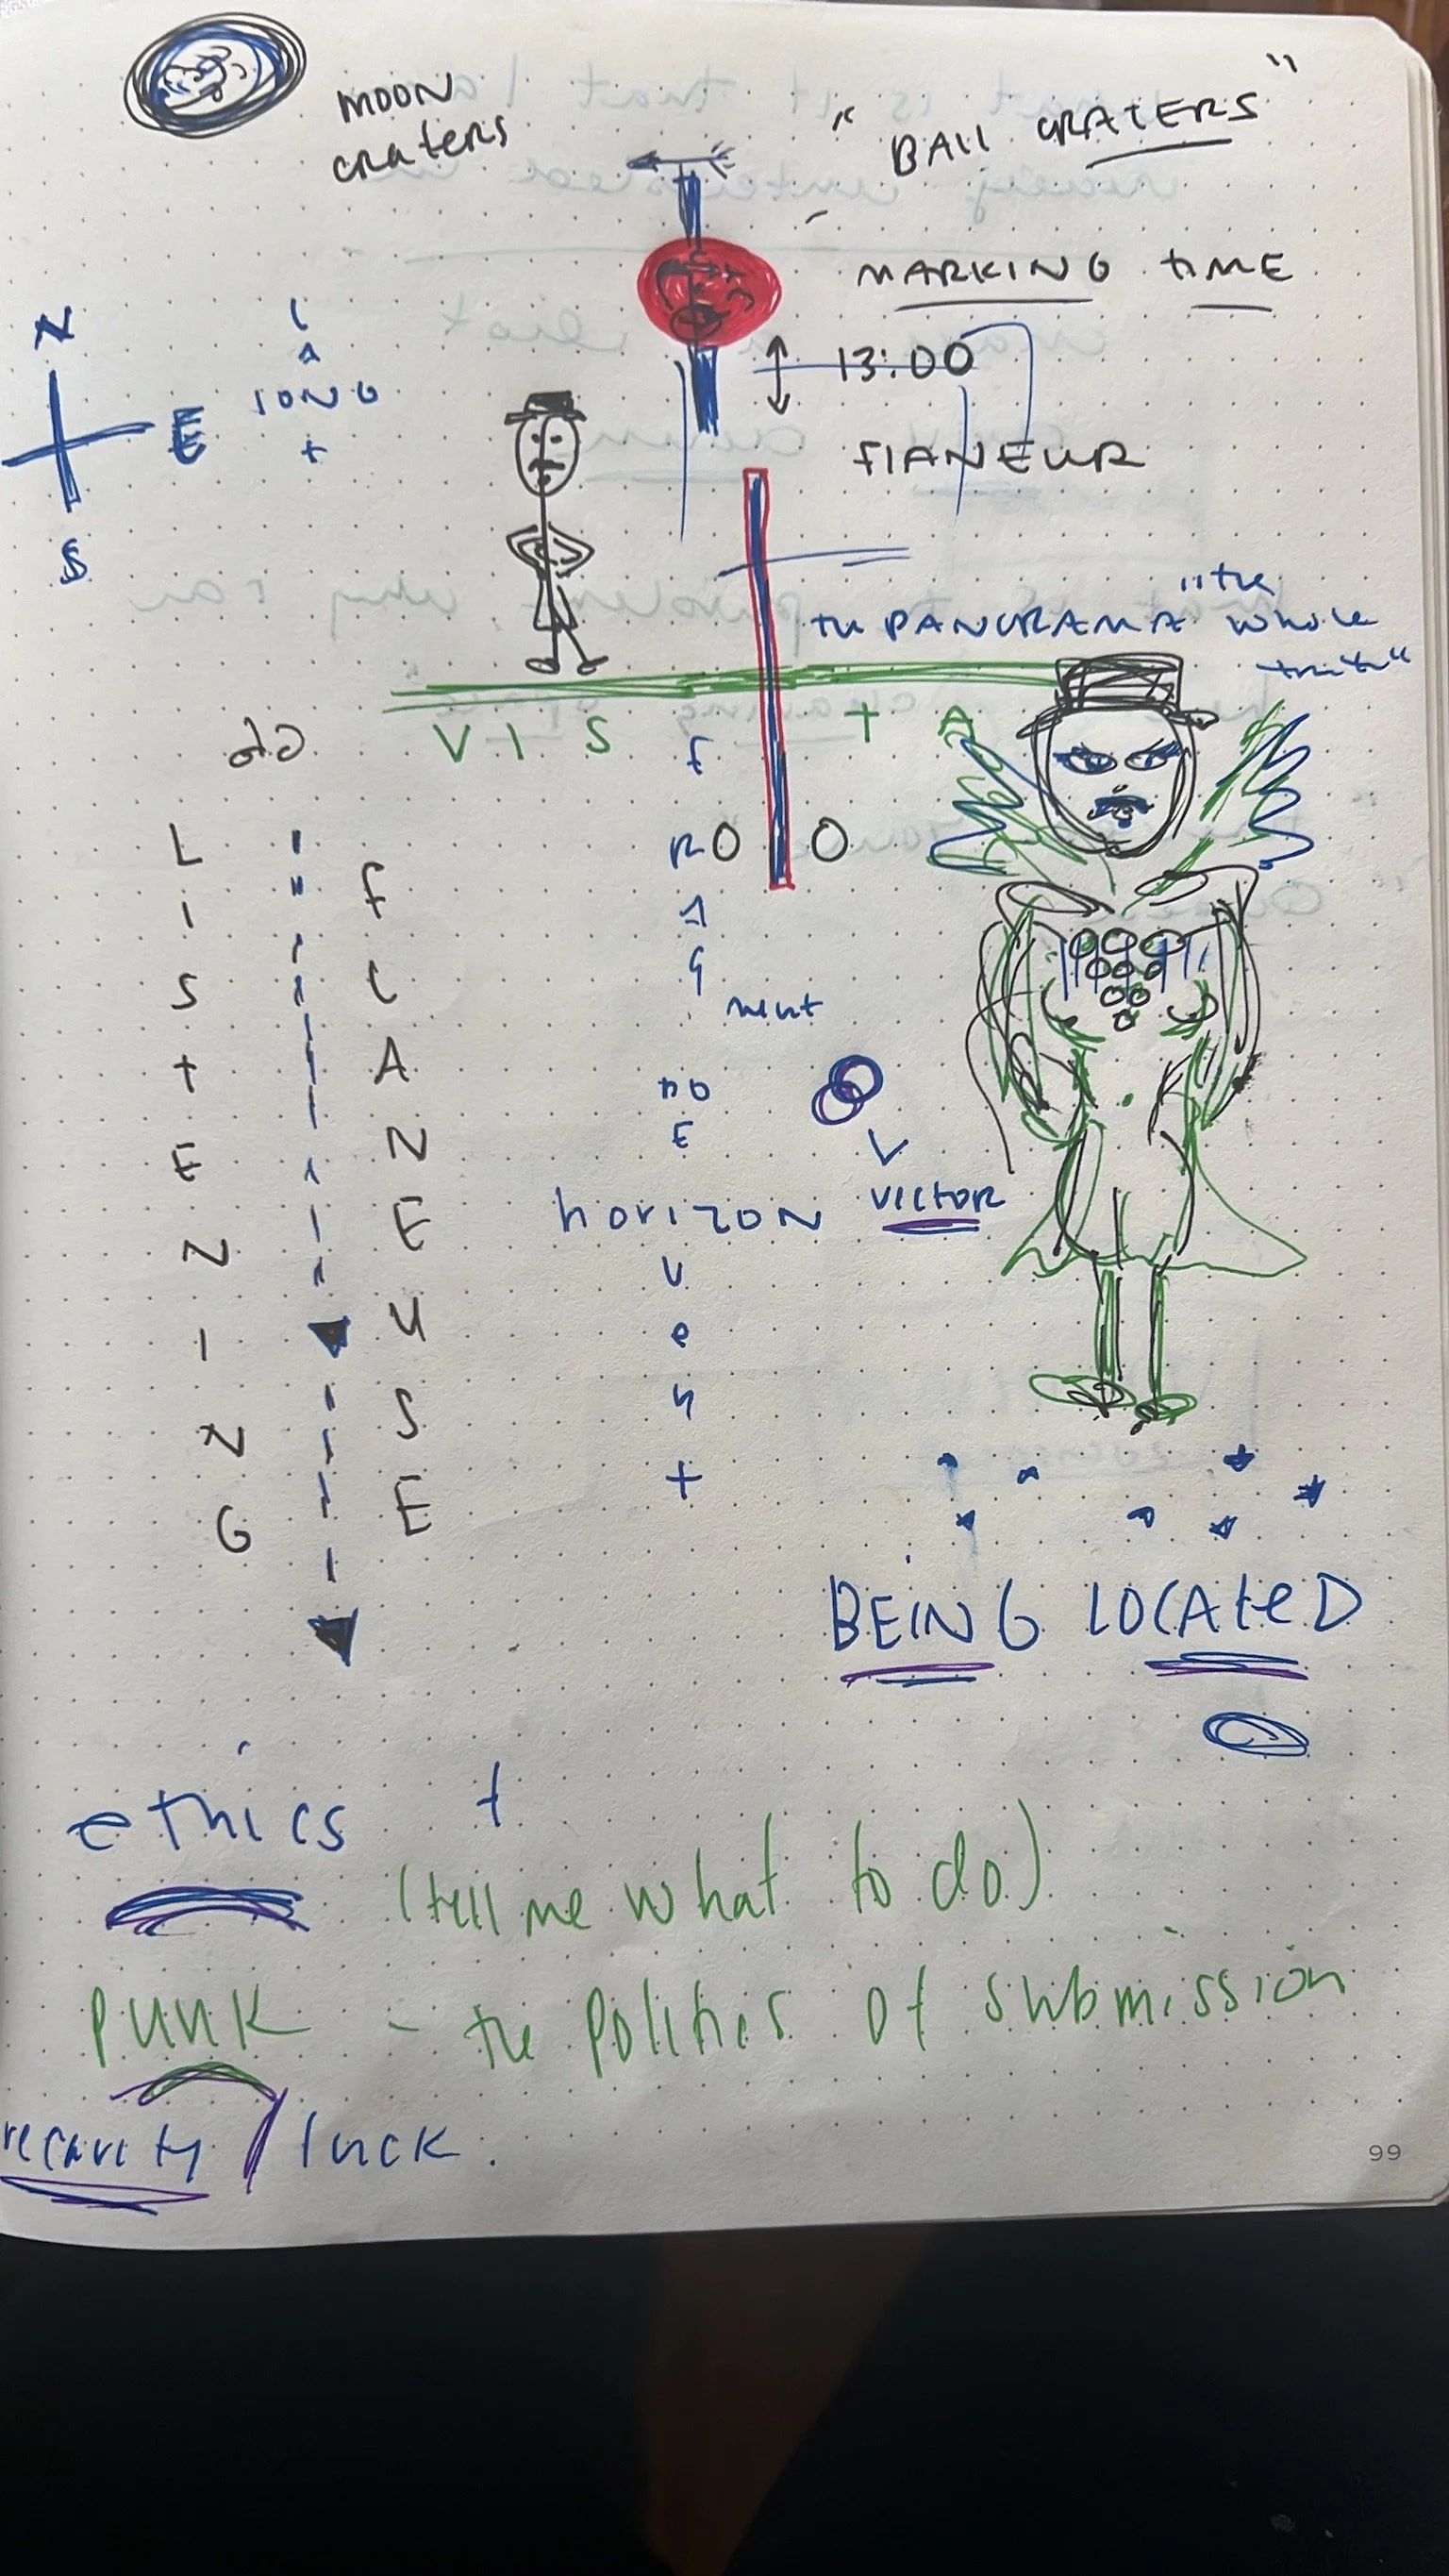 MOON
craters
"BAll CRATERS"
MARKING tIME
N
E
S
l
A
lONG
+
13:00
flANEUR
the PANORAMA "the
whole
truth"
V I S t A
L I S t E N I N G
f l A N E U S E
f R A G
ment
O O
horizon
V
VICtOR
v e n t
BEING LOCAteD
ethics +
(tell me what to do)
PUNK - the Politics of submission
luck.
99